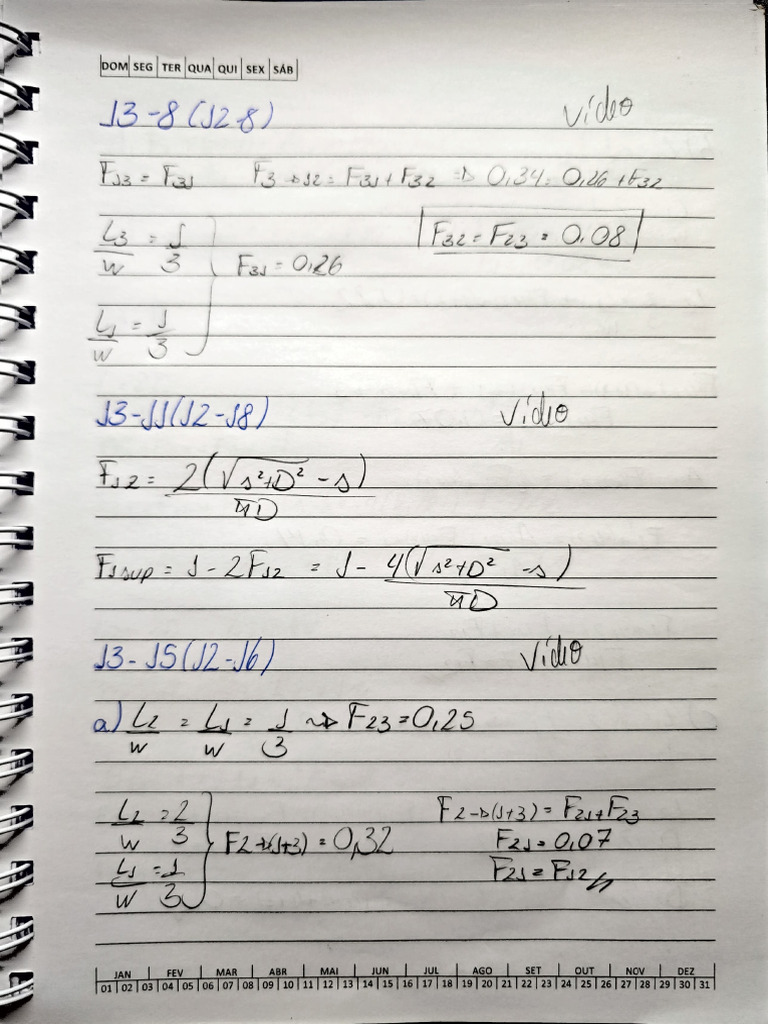 DOM SEG TER QUA QUI SEX SÁB
13-8 (12-8) vídeo
F13 = F31 F3→12 = F31 + F32 ⇒ 0,34 = 0,26 + F32
L3/W = 1/3 F31 = 0,26 F32 = F23 = 0,08
L1/W = 1/3
13-11 (12-18) vídeo
F12 = 2(√s²+D² - s)/πD
F1sup = 1 - 2F12 = 1 - 4(√s²+D² - s)/πD
13-15 (12-16) vídeo
a) L2/W = L1/W = 1/3 → F23 = 0,25
L2/W = 2/3 F2→(1+3) = 0,32 F2→(1+3) = F21 + F23
F21 = 0,07
L1/W = 1/3 F21 = F12
JAN FEV MAR ABR MAI JUN JUL AGO SET OUT NOV DEZ
01 02 03 04 05 06 07 08 09 10 11 12 13 14 15 16 17 18 19 20 21 22 23 24 25 26 27 28 29 30 31